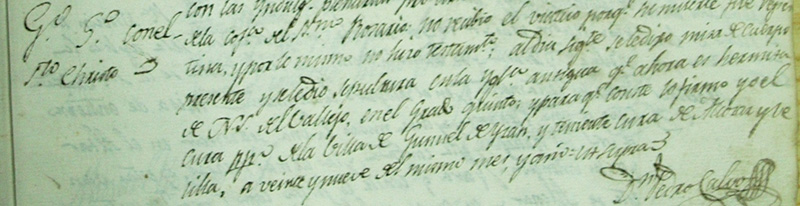 con las
Gº. Sº. con el
Stº Christo
de la cofª. del Ssmº Rosario; no recibió el viatico porq. su muerte fue repen
tina, y por lo mismo no hizo testamtº. al dia sigte. se le dixo misa de cuerpo
presente y se le dio sepultura en la Yglª antigua qª. ahora es hermita
de Nª. Sª. del Vallejo, en el Grado quinto, y para qª. conste lo firmo yo el
cura ppº. de la Villa de Gumiel de Yzan, y teniente cura de
lilla, a veinte y nueve del mismo mes y año = ut supra
Dn. Pedro Calvo